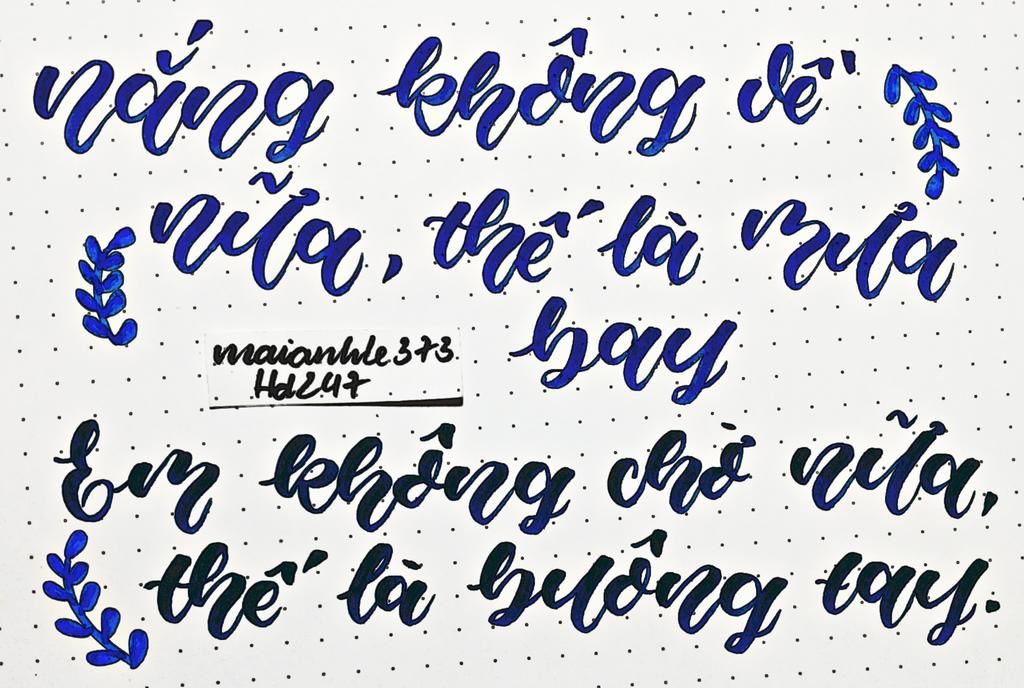 nắng không để
nữa, thế là mưa
bay
maianhle373
Hd247
Em không chờ nữa,
thế là buông tay.